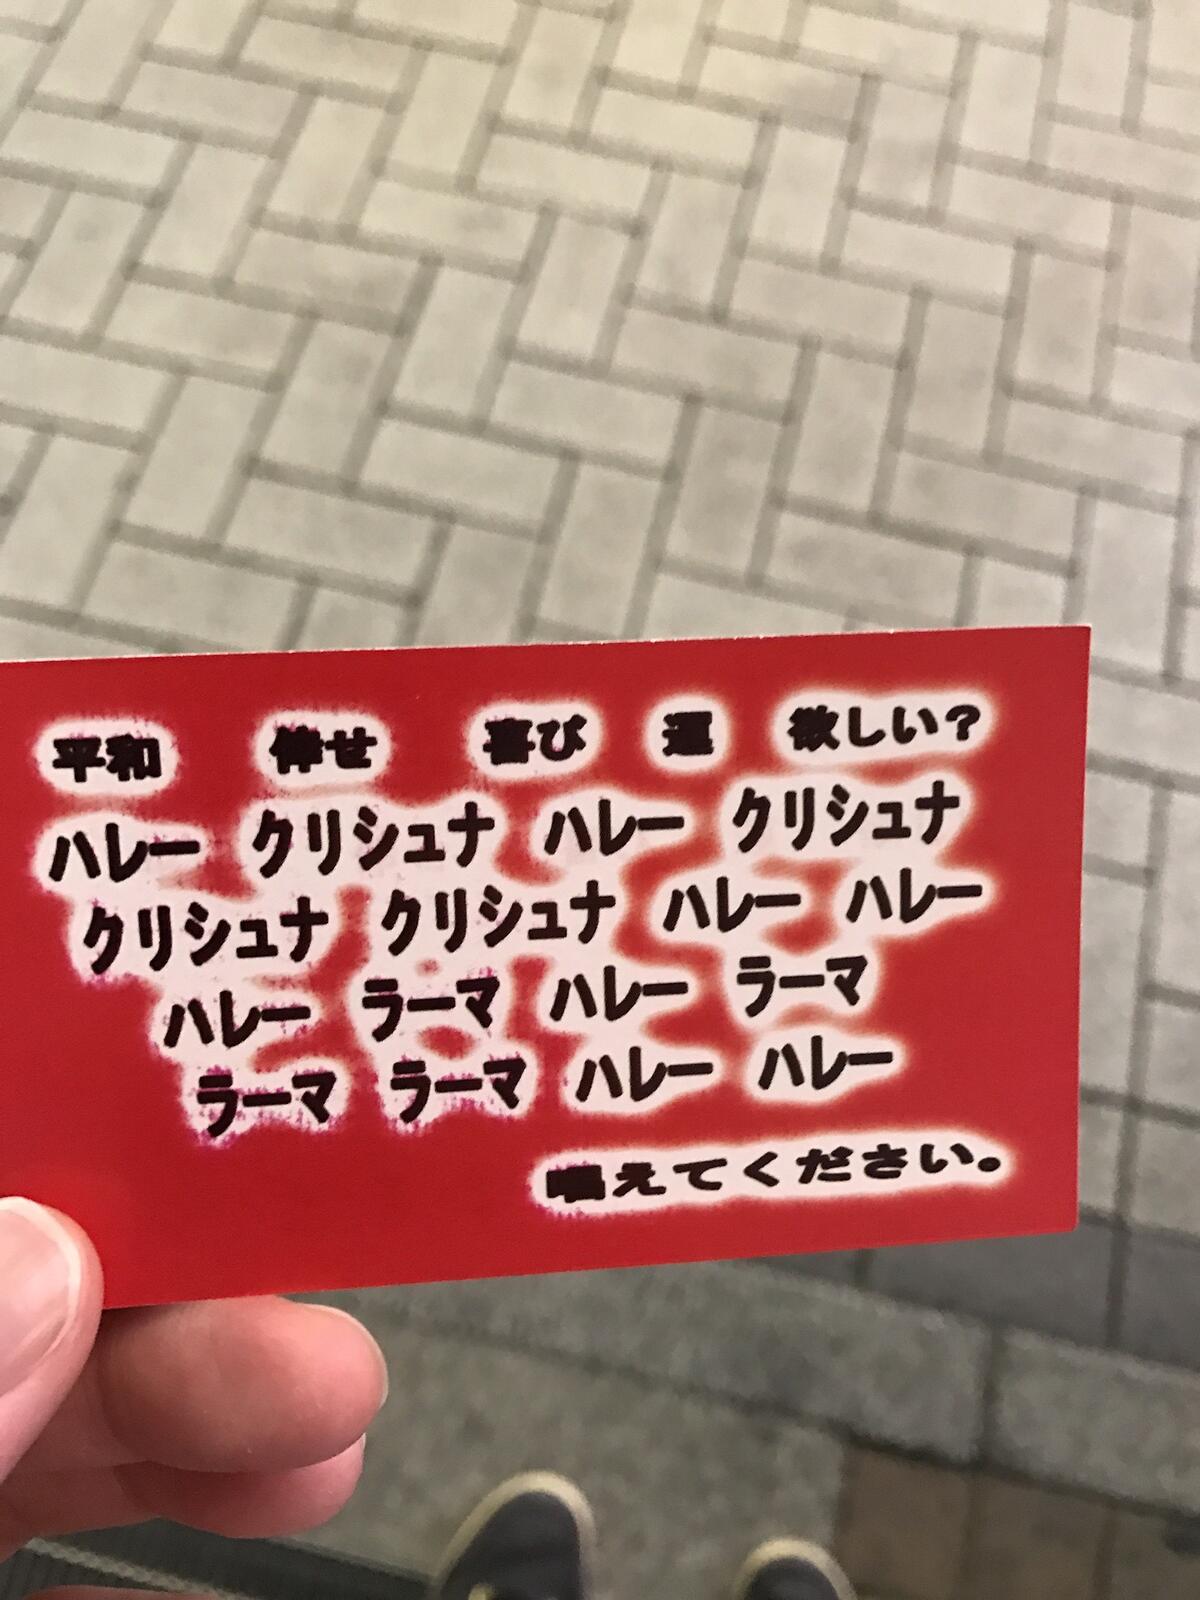 平和 倖せ 喜び 運 欲しい？
ハレー クリシュナ ハレー クリシュナ
クリシュナ クリシュナ ハレー ハレー
ハレー ラーマ ハレー ラーマ
ラーマ ラーマ ハレー ハレー
唱えてください。